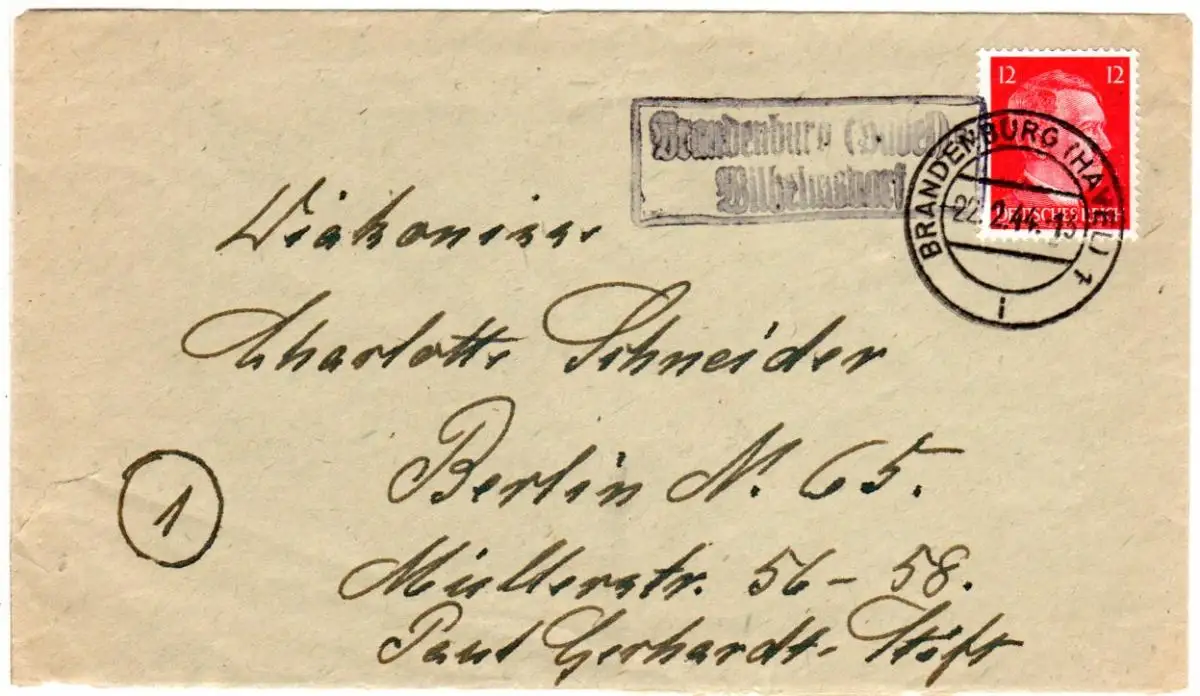 12 12
DEUTSCHES REICH
Brandenburg (Havel)
Wilhelmsdorf
BRANDENBURG (HAVEL) 1
22.2.44. 13
i
Diakonisse
Charlotte Schneider
Berlin N. 65.
1
Müllerstr. 56-58.
Paul Gerhardt-Stift